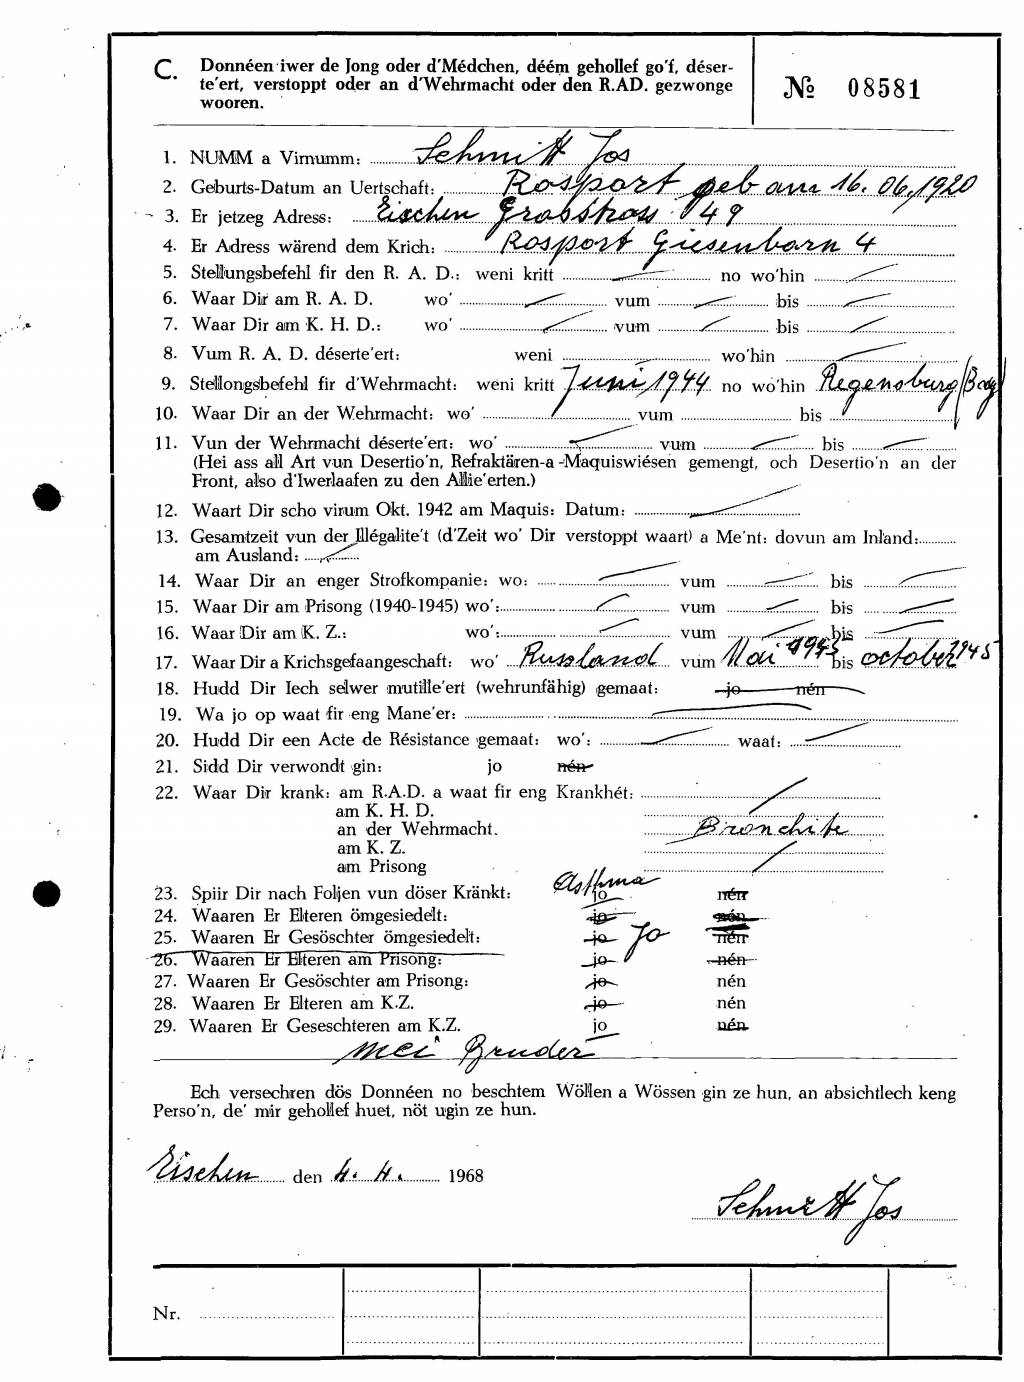 C. Donnéen iwer de Jong oder d'Médchen, déém gehollef go'f, déser-
te'ert, verstoppt oder an d'Wehrmacht oder den R.AD. gezwonge
wooren.
№ 08581
1. NUMM a Virnumm: Schmitt Jos
2. Geburts-Datum an Uertschaft: Rosport geb am 16.06.1920
3. Er jetzeg Adress: Eischen Grosstross 49
4. Er Adress wärend dem Krich: Rosport Giesenborn 4
5. Stellungsbefehl fir den R. A. D.: weni kritt no wo'hin
6. Waar Dir am R. A. D. wo' vum bis
7. Waar Dir am K. H. D.: wo' vum bis
8. Vum R. A. D. déserte'ert: weni wo'hin
9. Stellongsbefehl fir d'Wehrmacht: weni kritt Juni 1944 no wo'hin Regensburg
10. Waar Dir an der Wehrmacht: wo' vum bis
11. Vun der Wehrmacht déserte'ert: wo' vum bis
(Hei ass all Art vun Desertio'n, Refraktären-a-Maquiswiésen gemengt, och Desertio'n an der
Front, also d'Iwerlaafen zu den Allie'erten.)
12. Waart Dir scho virum Okt. 1942 am Maquis: Datum:
13. Gesamtzeit vun der Illégalite't (d'Zeit wo' Dir verstoppt waart) a Me'nt: dovun am Inland:
am Ausland:
14. Waar Dir an enger Strofkompanie: wo: vum bis
15. Waar Dir am Prisong (1940-1945) wo': vum bis
16. Waar Dir am K. Z.: wo': vum bis
17. Waar Dir a Krichsgefaangeschaft: wo' Russland vum Mai 1945 bis october 1945
18. Hudd Dir Iech selwer mutille'ert (wehrunfähig) gemaat: jo nén
19. Wa jo op waat fir eng Mane'er:
20. Hudd Dir een Acte de Résistance gemaat: wo': waat:
21. Sidd Dir verwondt gin: jo nén
22. Waar Dir krank: am R.A.D. a waat fir eng Krankhét:
am K. H. D.
an der Wehrmacht. Bronchite
am K. Z.
am Prisong
23. Spiir Dir nach Foljen vun döser Kränkt: Asthma jo nén
24. Waaren Er Elteren ömgesiedelt: jo nén
25. Waaren Er Gesöschter ömgesiedelt: jo Jo nén
26. Waaren Er Elteren am Prisong: jo nén
27. Waaren Er Gesöschter am Prisong: jo nén
28. Waaren Er Elteren am K.Z. jo nén
29. Waaren Er Geseschteren am K.Z. jo nén
mei Bruder
Ech versechren dös Donnéen no beschtem Wöllen a Wössen gin ze hun, an absichtlech keng
Perso'n, de' mir gehollef huet, nöt ugin ze hun.
Eischen den 4. 4. 1968
Schmitt Jos
Nr.